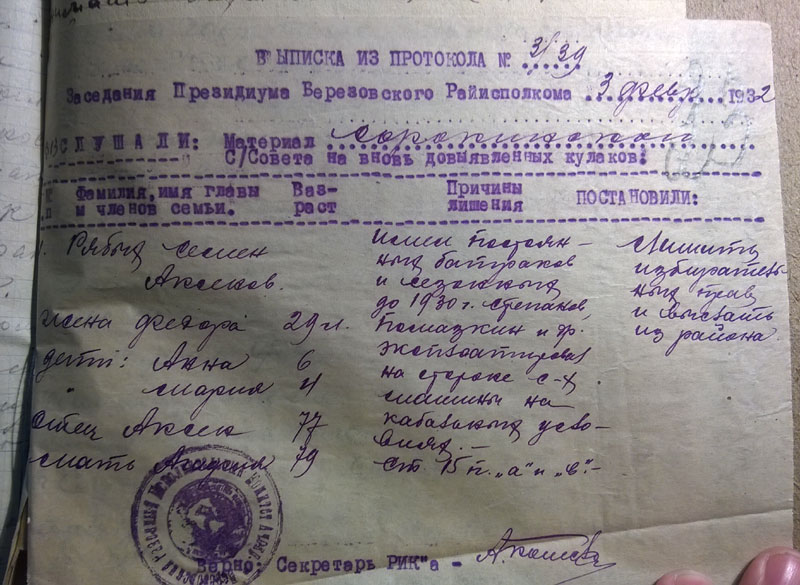 ВЫПИСКА ИЗ ПРОТОКОЛА № 3/39
Заседания Президиума Березовского Райисполкома 3 февр. 1932
СЛУШАЛИ: Материал
С/Совета на вновь довыявленных кулаков:
Фамилия, имя главы Воз- Причины ПОСТАНОВИЛИ:
и членов семьи. раст лишения
1. Рябых Семен Имел постоян- Лишить
Аксенов. ных батраков избиратель-
и сезонных ных прав
до 1930 г. Степанов, и выслать
жена Федора 29 л. Помазкин и др. из района.
дети: Анна 6 эксплоатировал
" Мария 4 на стороне с-х
машины на
Отец Аксен 77 кабальных усло-
виях.-
мать 79 Ст 15 п. „а" и „в".-
Верно: Секретарь РИК"а -